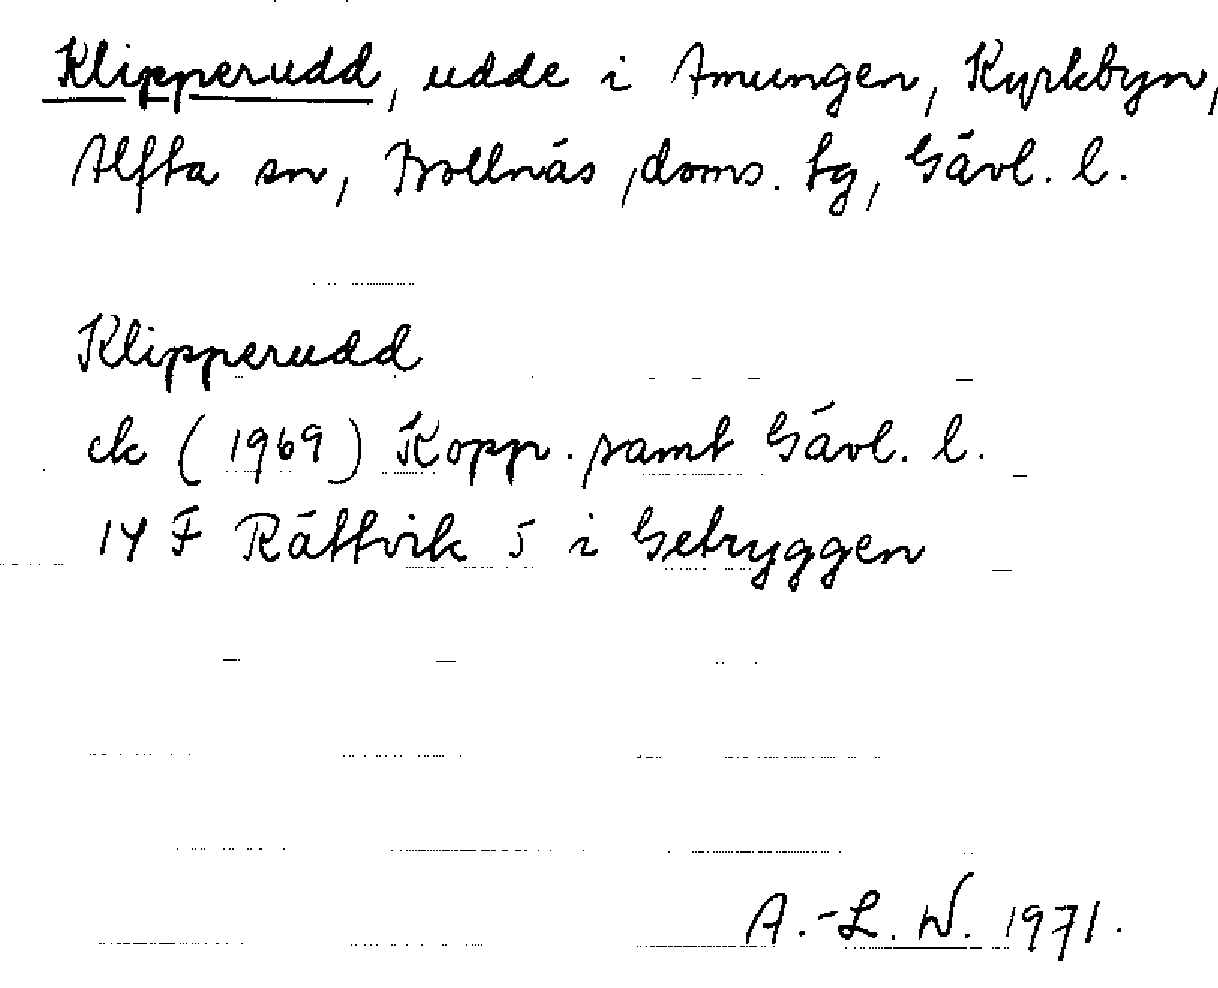 Klipperudd, udde i Amungen, Kyrkbyn,
Alfta sn, Bollnäs doms. tg, Gävl. l.
Klipperudd
ek (1969) Kopp. samt Gävl. l.
14 F Rättvik 5 i Getryggen
A.-L. W. 1971.